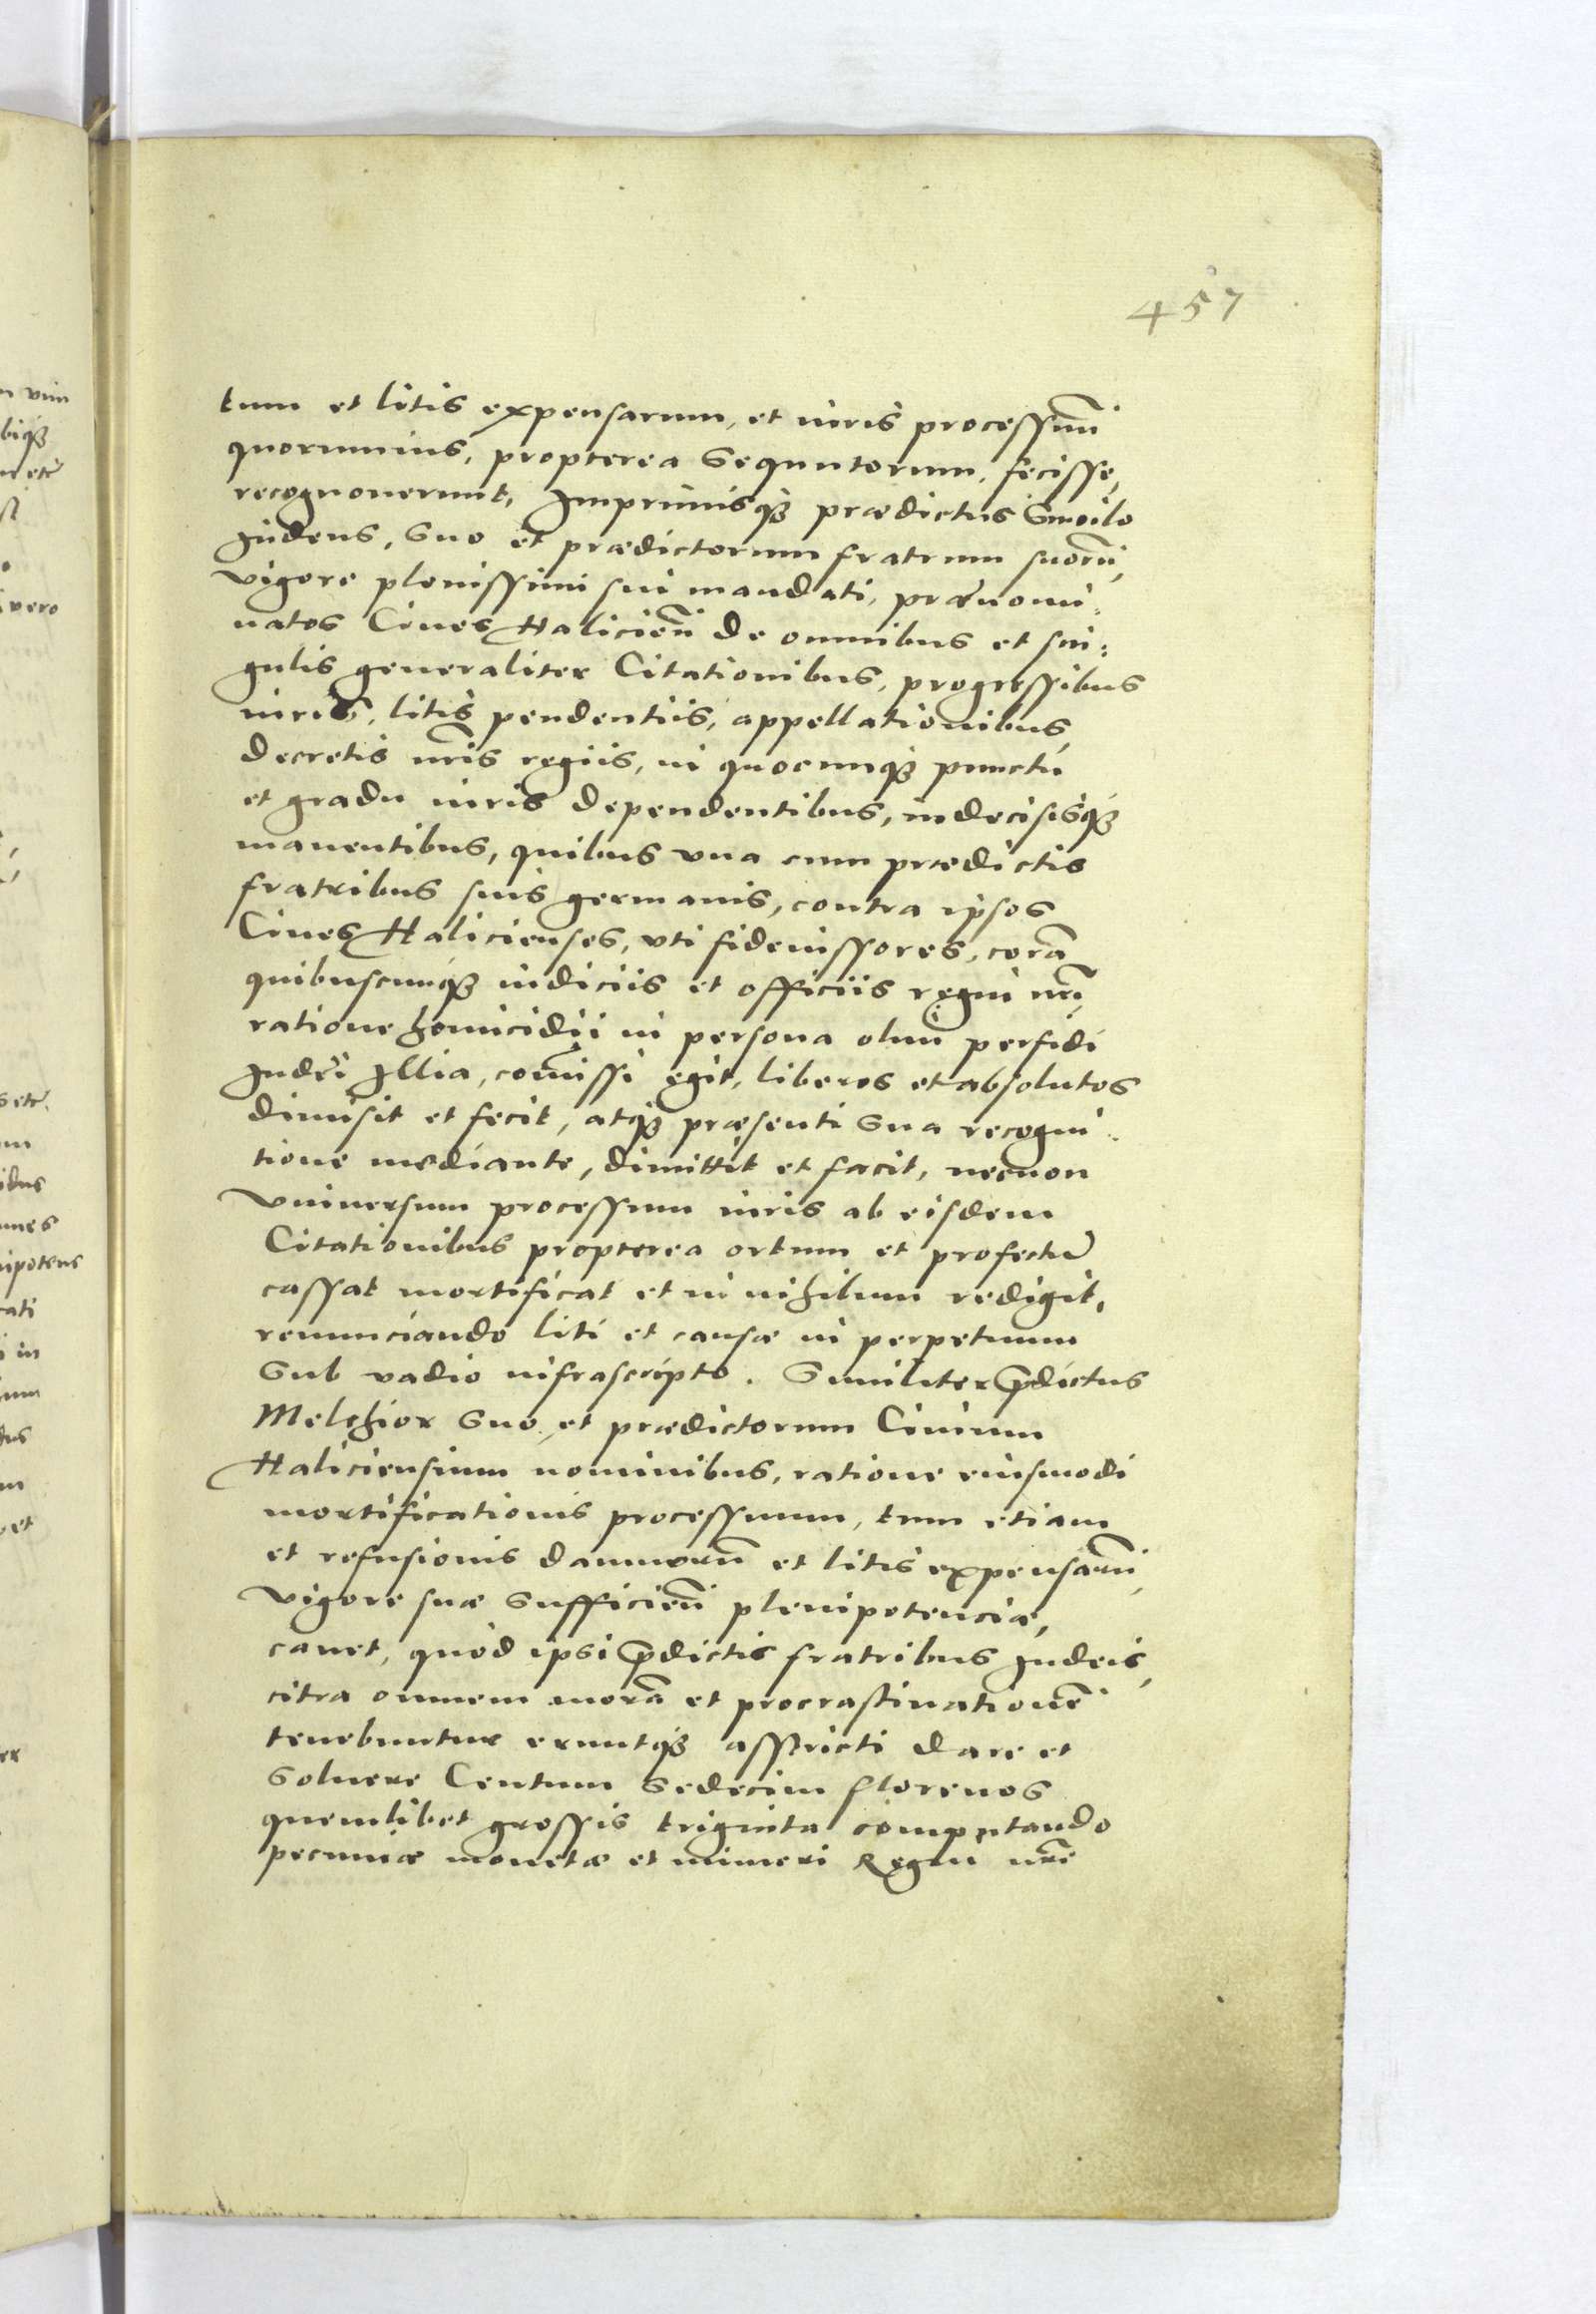 457
tum et litis expensarum, et iuris processuū
quorumuis, propterea sequutorum, fecisse,
recognouerunt, Imprimisq3 prædictus Smoilo
Iudeus, suo et prædictorum fratrum suorū,
vigore plenissimi sui mandati, prænomi:
natos Ciues Halicień de omnibus et sin:
gulis generaliter Citationibus, progressibus
iuris, litis pendentiis, appellationibus,
decretis nr̃is regiis, in quocunq3 punctu
et gradu iuris dependentibus, indecisisq3
manentibus, quibus vna cum prædictis
fratribus suis germanis, contra ipsos
Ciues Halicienses, vti fideiussores, corā
quibuscunq3 iudiciis et officiis regni nr̃i,
ratione homicidii in persona olim perfidi
Iudęi Illia, com̃issi egit, liberos et absolutos
dimisit et fecit, atq3 præsenti sua recogni:
tione mediante, dimittit et facit, necnon
vniuersum processum iuris ab eisdem
Citationibus propterea ortum et profectū
cassat mortificat et in nihilum redigit,
renunciando liti et causæ in perpetuum
sub vadio infrascripto. Similiter p̃dictus
Melchior suo, et prædictorum Ciuium
Haliciensium nominibus, ratione eiusmodi
mortificationis processuum, tum etiam
et refusionis damnorū et litis expensarū,
vigore suæ sufficień plenipotenciæ,
cauet, quod ipsi p̃dictis fratribus Iudeis,
citra omnem morā et procrastinationē
tenebuntur eruntq3 asstricti dare et
soluere Centum sedecim florenos
quemlibet grossis triginta computando
pecuniæ monetæ et numeri Regni nr̃i